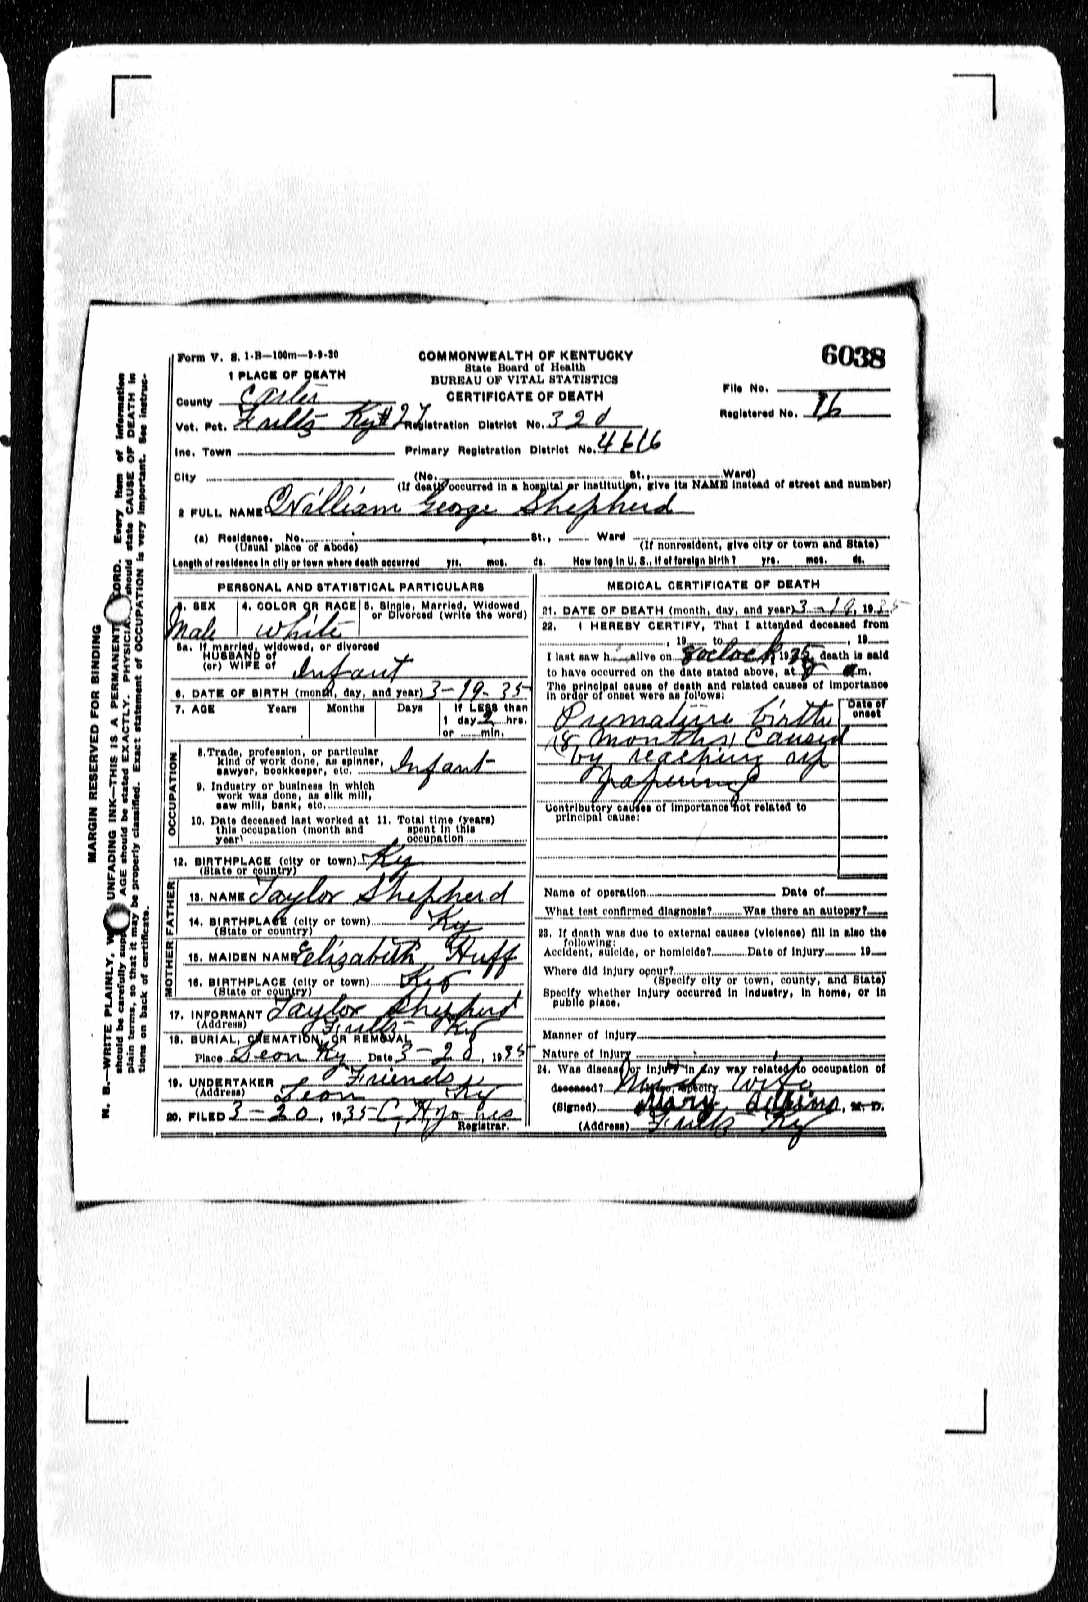 Form V. S. 1-B—100m—9-9-30
COMMONWEALTH OF KENTUCKY
State Board of Health
BUREAU OF VITAL STATISTICS
CERTIFICATE OF DEATH
6038
1 PLACE OF DEATH
County Carter
File No.
Vot. Pct. Fultz Ky #27 Registration District No. 320
Registered No. 16
Inc. Town Primary Registration District No. 4616
City (No. St., Ward)
(If death occurred in a hospital or institution, give its NAME instead of street and number)
2 FULL NAME William George Shepherd
(a) Residence. No. St., Ward
(Usual place of abode) (If nonresident, give city or town and State)
Length of residence in city or town where death occurred yrs. mos. ds. How long in U. S., if of foreign birth? yrs. mos. ds.
PERSONAL AND STATISTICAL PARTICULARS
3. SEX 4. COLOR OR RACE 5. Single, Married, Widowed
or Divorced (write the word)
Male white
5a. If married, widowed, or divorced
HUSBAND of
(or) WIFE of Infant
6. DATE OF BIRTH (month, day, and year) 3-19-35
7. AGE Years Months Days If LESS than
1 day 2 hrs.
or min.
OCCUPATION
8. Trade, profession, or particular
kind of work done, as spinner,
sawyer, bookkeeper, etc. Infant
9. Industry or business in which
work was done, as silk mill,
saw mill, bank, etc.
10. Date deceased last worked at 11. Total time (years)
this occupation (month and spent in this
year) occupation
12. BIRTHPLACE (city or town) Ky
(State or country)
FATHER
13. NAME Taylor Shepherd
14. BIRTHPLACE (city or town) Ky
(State or country)
MOTHER
15. MAIDEN NAME Elizabeth Huff
16. BIRTHPLACE (city or town) Ky
(State or country)
17. INFORMANT Taylor Shepherd
(Address) Fultz Ky
18. BURIAL, CREMATION, OR REMOVAL
Place Leon Ky Date 3-20, 1935
19. UNDERTAKER Friends
(Address) Leon Ky
20. FILED 3-20, 1935 C. H. Jones
Registrar.
MEDICAL CERTIFICATE OF DEATH
21. DATE OF DEATH (month, day, and year) 3-19, 1935
22. I HEREBY CERTIFY, That I attended deceased from
, 19 to , 19
I last saw h alive on 8 oclock, 1935, death is said
to have occurred on the date stated above, at 8 a m.
The principal cause of death and related causes of importance
in order of onset were as follows:
Date of
onset
Premature birth
(8 months) Caused
by reaching up
papering
Contributory causes of importance not related to
principal cause:
Name of operation Date of
What test confirmed diagnosis? Was there an autopsy?
23. If death was due to external causes (violence) fill in also the
following:
Accident, suicide, or homicide? Date of injury 19
Where did injury occur?
(Specify city or town, county, and State)
Specify whether injury occurred in industry, in home, or in
public place.
Manner of injury
Nature of injury
24. Was disease or injury in any way related to occupation of
deceased? If so, specify Mid Wife
(Signed) Mary M. D.
(Address) Fultz Ky
MARGIN RESERVED FOR BINDING
N. B.—WRITE PLAINLY, UNFADING INK—THIS IS A PERMANENT Every item of information
should be carefully AGE should be stated EXACTLY. should state CAUSE OF DEATH in
plain terms, so that it may be properly classified. Exact statement of OCCUPATION is very important. See instruc-
tions on back of certificate.